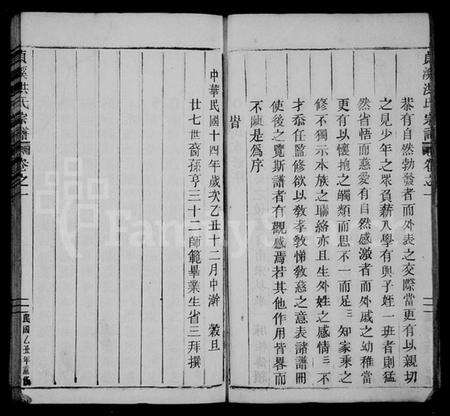 恭有自然勃發者而外表之交際當更有以親切
之見少年之眾負薪入學有與子姪一班者則猛
然省悟而慈愛有自然感激者而外戚之幼稚當
更有以懷抱之觸類而思不一而足三知家乘之
修不獨示本族之聯絡亦且生外姓之感情三不
才忝任監修欲以敎孝敎悌敎慈之意表諸譜冊
使後之覽斯譜者有觀感焉若其他作用皆畧而
不陳是爲序
旹
中華民國十四年歲次乙丑十二月中澣 穀旦
廿七世裔孫亨三十二師範畢業生省三拜撰
貞溪洪氏宗譜
卷之一
民國乙丑年重修